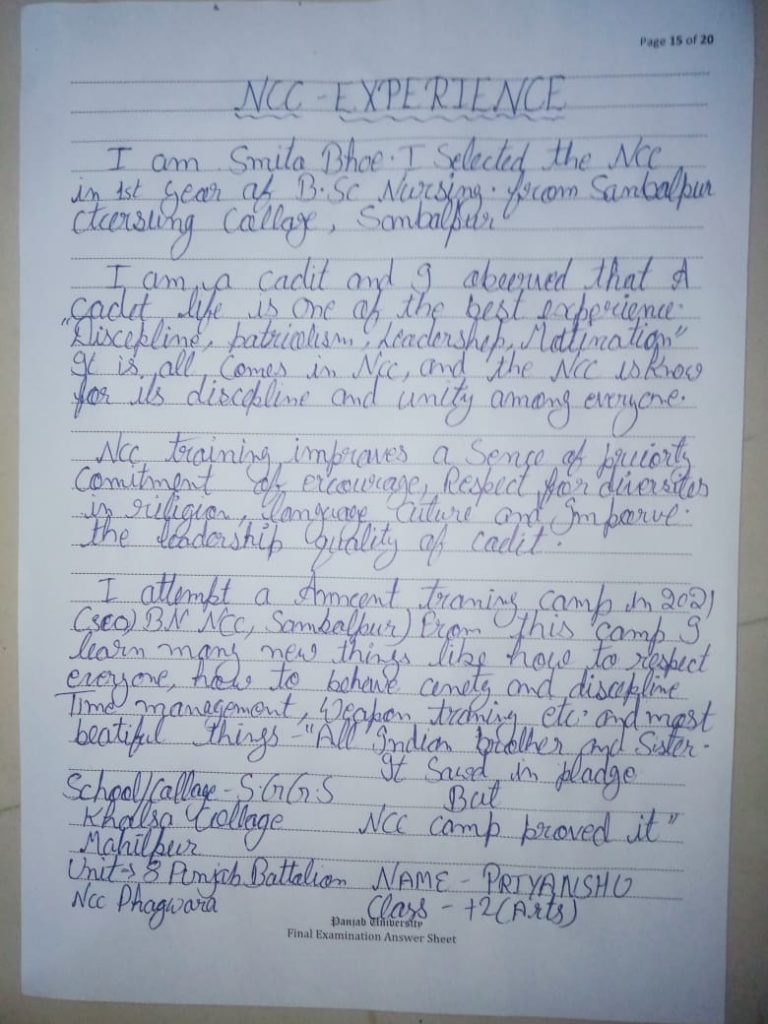 Page 15 of 20
NCC - EXPERIENCE
I am Smita Bhoe. I Selected the NCC
in 1st year of B.Sc Nursing. from Sambalpur
Callage, Sambalpur
I am a cadit and I that A
cadet life is one of the best experience.
"Discepline, patriolism, Leadership, Motivation"
It is all comes in Ncc, and the NCC is know
for its discepline and unity among everyone.
Ncc training improves a Sence of
Comitment of encourage, Respect for diversites
in religion, language Cuture and Imparve.
the leadorship quality of cadit.
I attempt a traning camp in 2021
BN NCC, Sambalpur) From this camp I
learn many new things like how to respect
everyone, how to behave and discepline
Time management, Weapon traning etc. and most
beatiful things - "All Indian brother and Sister.
It Sawd in pladge
School/Callage - S.G.G.S But
Khalsa Collage NCC camp proved it"
Mahilpur
Unit → 8 Punjab Battalion NAME - PRIYANSHU
Ncc Phagwara Class - +2 (Arts)
Panjab University
Final Examination Answer Sheet